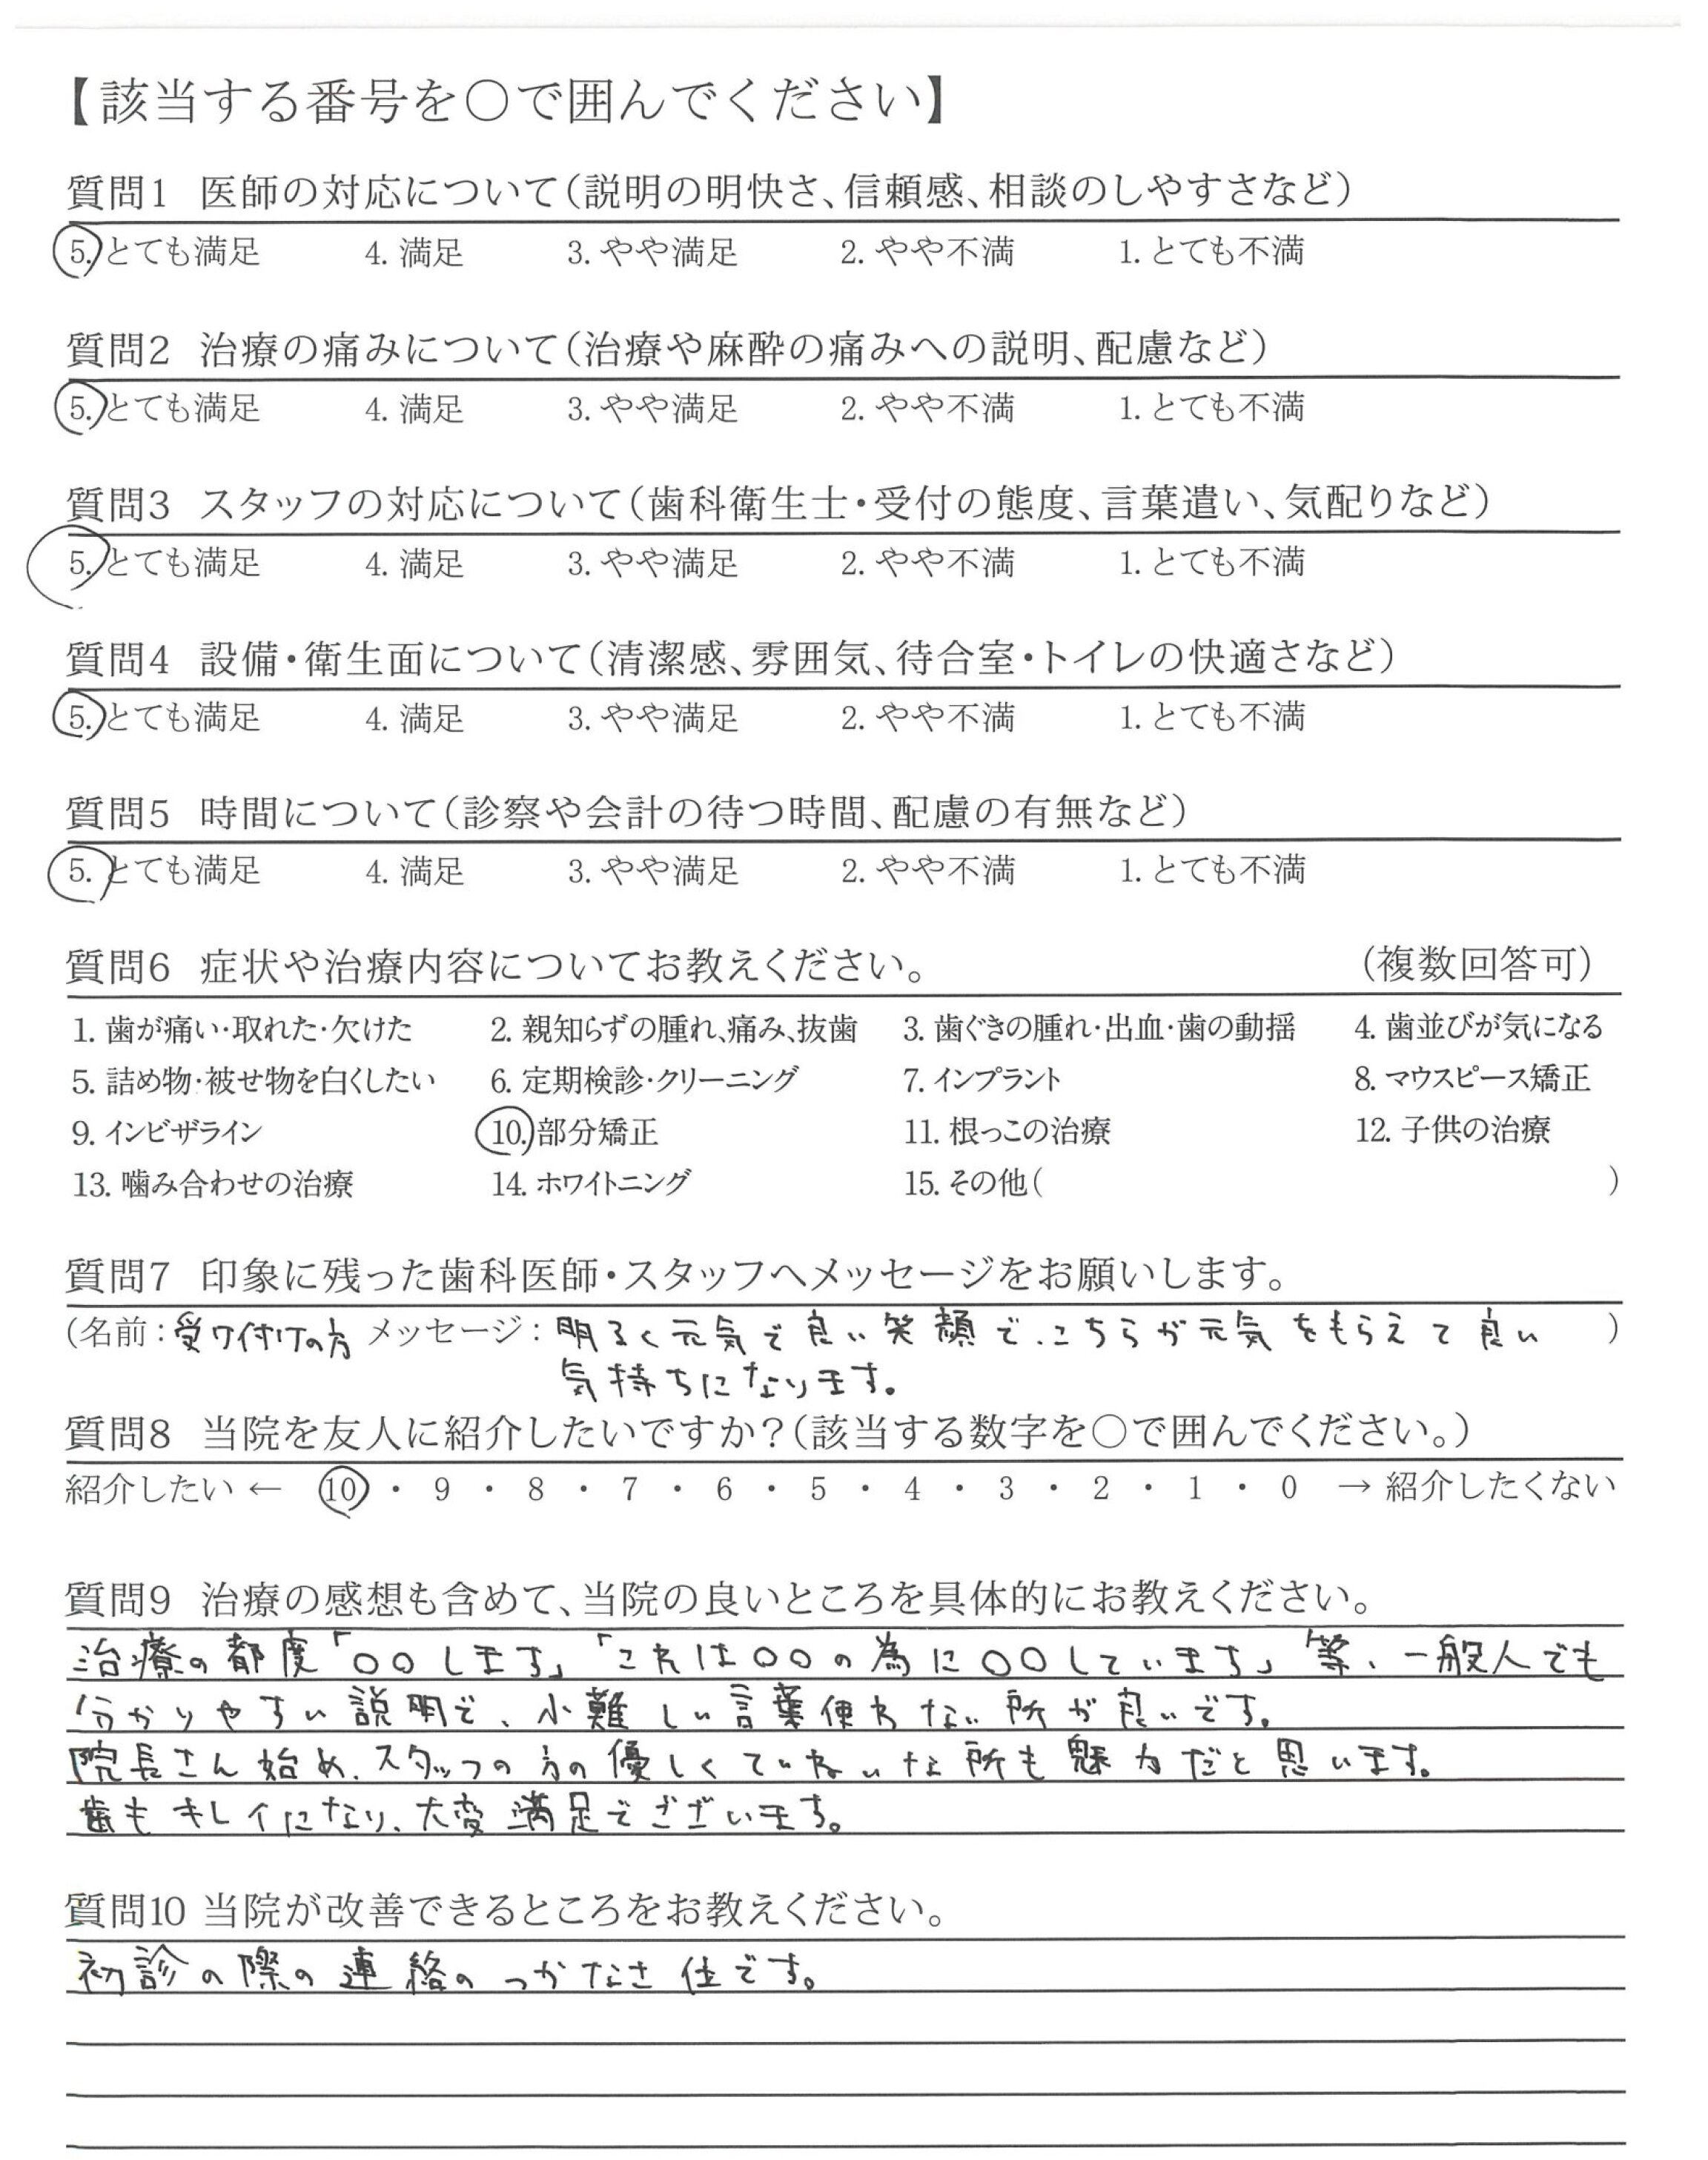 【該当する番号を○で囲んでください】
質問1 医師の対応について(説明の明快さ、信頼感、相談のしやすさなど)
5. とても満足 4. 満足 3. やや満足 2. やや不満 1. とても不満
質問2 治療の痛みについて(治療や麻酔の痛みへの説明、配慮など)
5. とても満足 4. 満足 3. やや満足 2. やや不満 1. とても不満
質問3 スタッフの対応について(歯科衛生士・受付の態度、言葉遣い、気配りなど)
5. とても満足 4. 満足 3. やや満足 2. やや不満 1. とても不満
質問4 設備・衛生面について(清潔感、雰囲気、待合室・トイレの快適さなど)
5. とても満足 4. 満足 3. やや満足 2. やや不満 1. とても不満
質問5 時間について(診察や会計の待つ時間、配慮の有無など)
5. とても満足 4. 満足 3. やや満足 2. やや不満 1. とても不満
質問6 症状や治療内容についてお教えください。 (複数回答可)
1. 歯が痛い・取れた・欠けた 2. 親知らずの腫れ、痛み、抜歯 3. 歯ぐきの腫れ・出血・歯の動揺 4. 歯並びが気になる
5. 詰め物・被せ物を白くしたい 6. 定期検診・クリーニング 7. インプラント 8. マウスピース矯正
9. インビザライン 10. 部分矯正 11. 根っこの治療 12. 子供の治療
13. 噛み合わせの治療 14. ホワイトニング 15. その他( )
質問7 印象に残った歯科医師・スタッフへメッセージをお願いします。
(名前:受け付けの方 メッセージ:明るく元気で良い笑顔で、こちらが元気をもらえて良い )
気持ちになります。
質問8 当院を友人に紹介したいですか?(該当する数字を○で囲んでください。)
紹介したい ← 10 ・ 9 ・ 8 ・ 7 ・ 6 ・ 5 ・ 4 ・ 3 ・ 2 ・ 1 ・ 0 → 紹介したくない
質問9 治療の感想も含めて、当院の良いところを具体的にお教えください。
治療の都度「○○します」「これは○○の為に○○しています」等、一般人でも
分かりやすい説明で、小難しい言葉使わない所が良いです。
院長さん始め、スタッフの方の優しくていねいな所も魅力だと思います。
歯もキレイになり、大変満足でございます。
質問10 当院が改善できるところをお教えください。
初診の際の連絡のつかなさ位です。